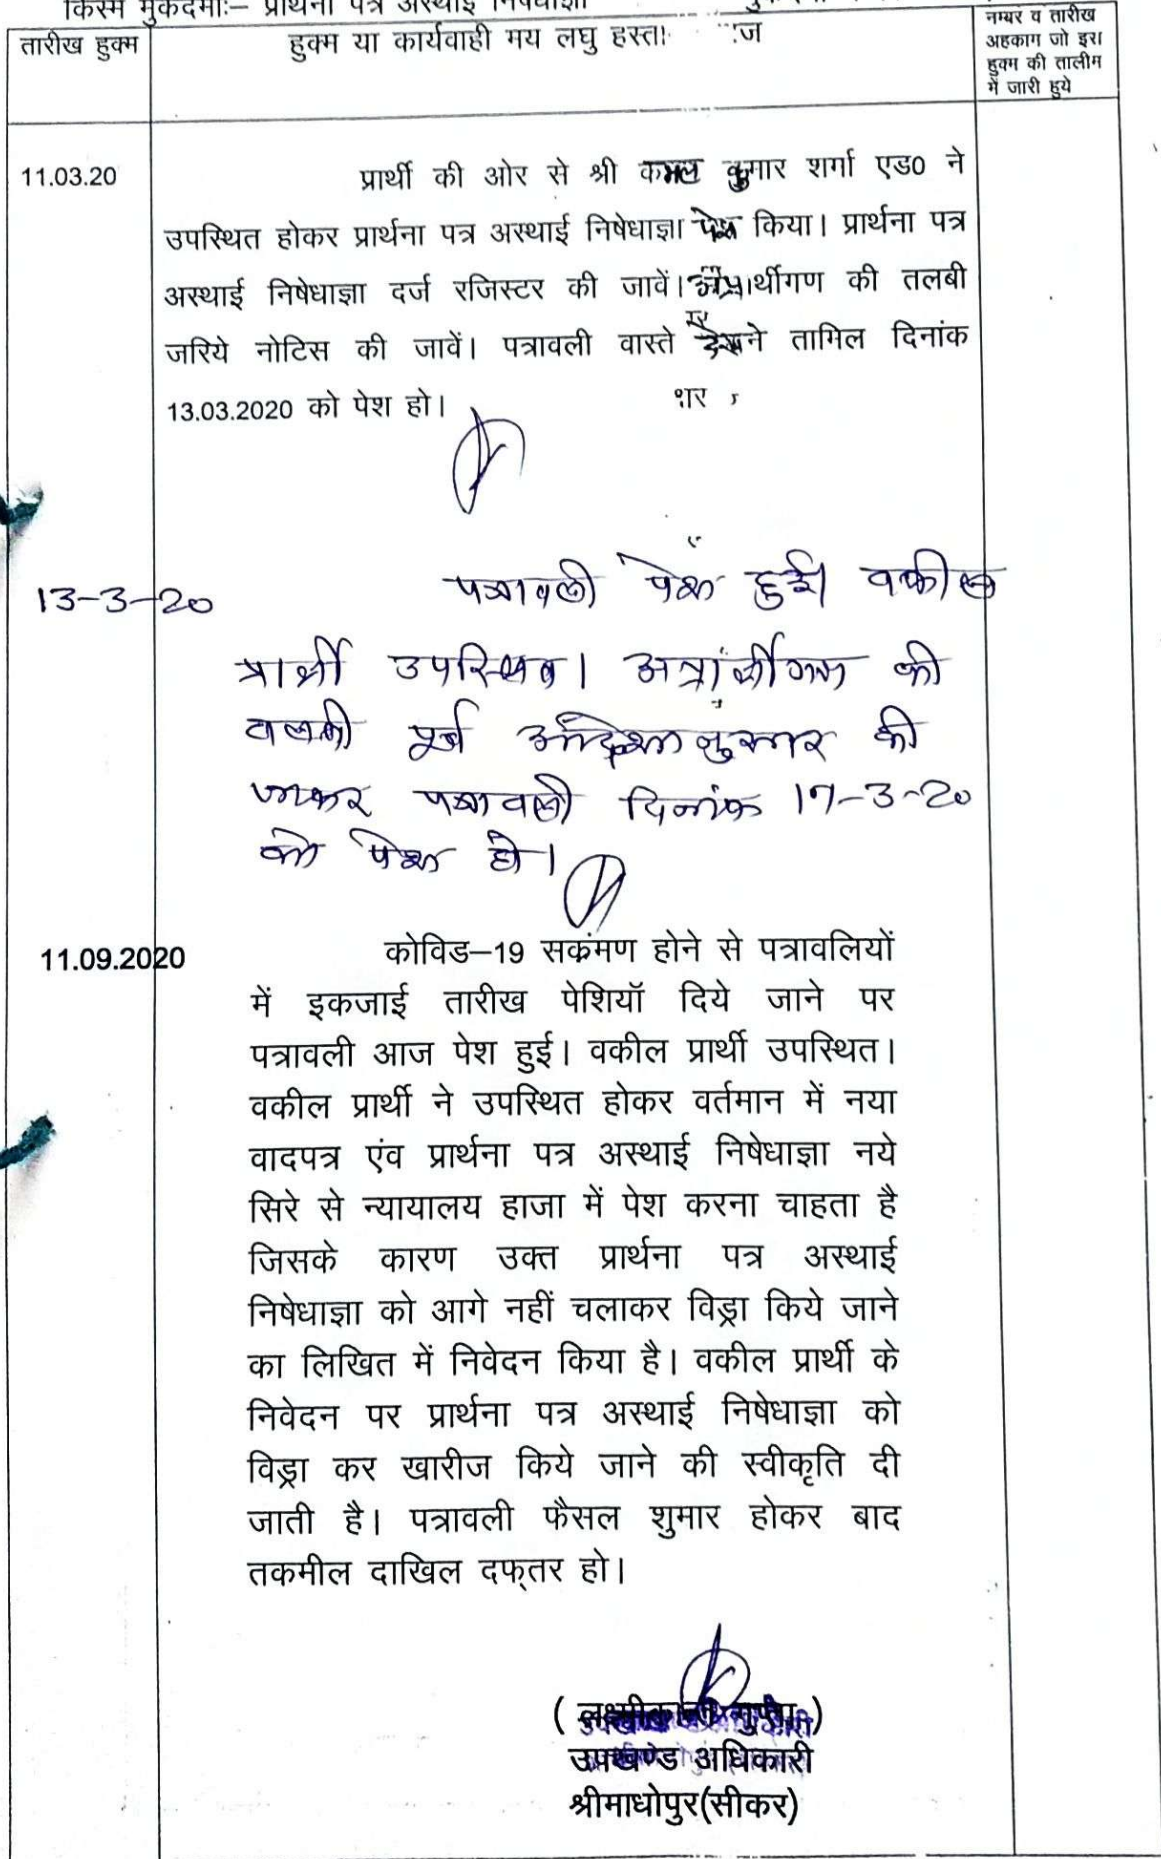 किस्म मुकदमाः– प्रार्थना पत्र अस्थाई निषेधाज्ञा
तारीख हुक्म
हुक्म या कार्यवाही मय लघु हस्ता ज
नम्बर व तारीख
अहकाम जो इस
हुक्म की तालीम
में जारी हुये
11.03.20
प्रार्थी की ओर से श्री कमल कुमार शर्मा एड0 ने
उपस्थित होकर प्रार्थना पत्र अस्थाई निषेधाज्ञा पेश किया। प्रार्थना पत्र
अस्थाई निषेधाज्ञा दर्ज रजिस्टर की जावें। अप्रार्थीगण की तलबी
जरिये नोटिस की जावें। पत्रावली वास्ते तामिल दिनांक
13.03.2020 को पेश हो।
13-3-20
पत्रावली पेश हुई। वकील
प्रार्थी उपस्थित। अप्रार्थीगण की
तलबी पूर्व आदेशानुसार की
जाकर पत्रावली दिनांक 17-3-20
को पेश हो।
11.09.2020
कोविड–19 सकंमण होने से पत्रावलियों
में इकजाई तारीख पेशियॉ दिये जाने पर
पत्रावली आज पेश हुई। वकील प्रार्थी उपस्थित।
वकील प्रार्थी ने उपस्थित होकर वर्तमान में नया
वादपत्र एंव प्रार्थना पत्र अस्थाई निषेधाज्ञा नये
सिरे से न्यायालय हाजा में पेश करना चाहता है
जिसके कारण उक्त प्रार्थना पत्र अस्थाई
निषेधाज्ञा को आगे नहीं चलाकर विड्रा किये जाने
का लिखित में निवेदन किया है। वकील प्रार्थी के
निवेदन पर प्रार्थना पत्र अस्थाई निषेधाज्ञा को
विड्रा कर खारीज किये जाने की स्वीकृति दी
जाती है। पत्रावली फैसल शुमार होकर बाद
तकमील दाखिल दफ्तर हो।
( लक्ष्मीकान्त गुप्ता )
उपखण्ड अधिकारी
श्रीमाधोपुर(सीकर)